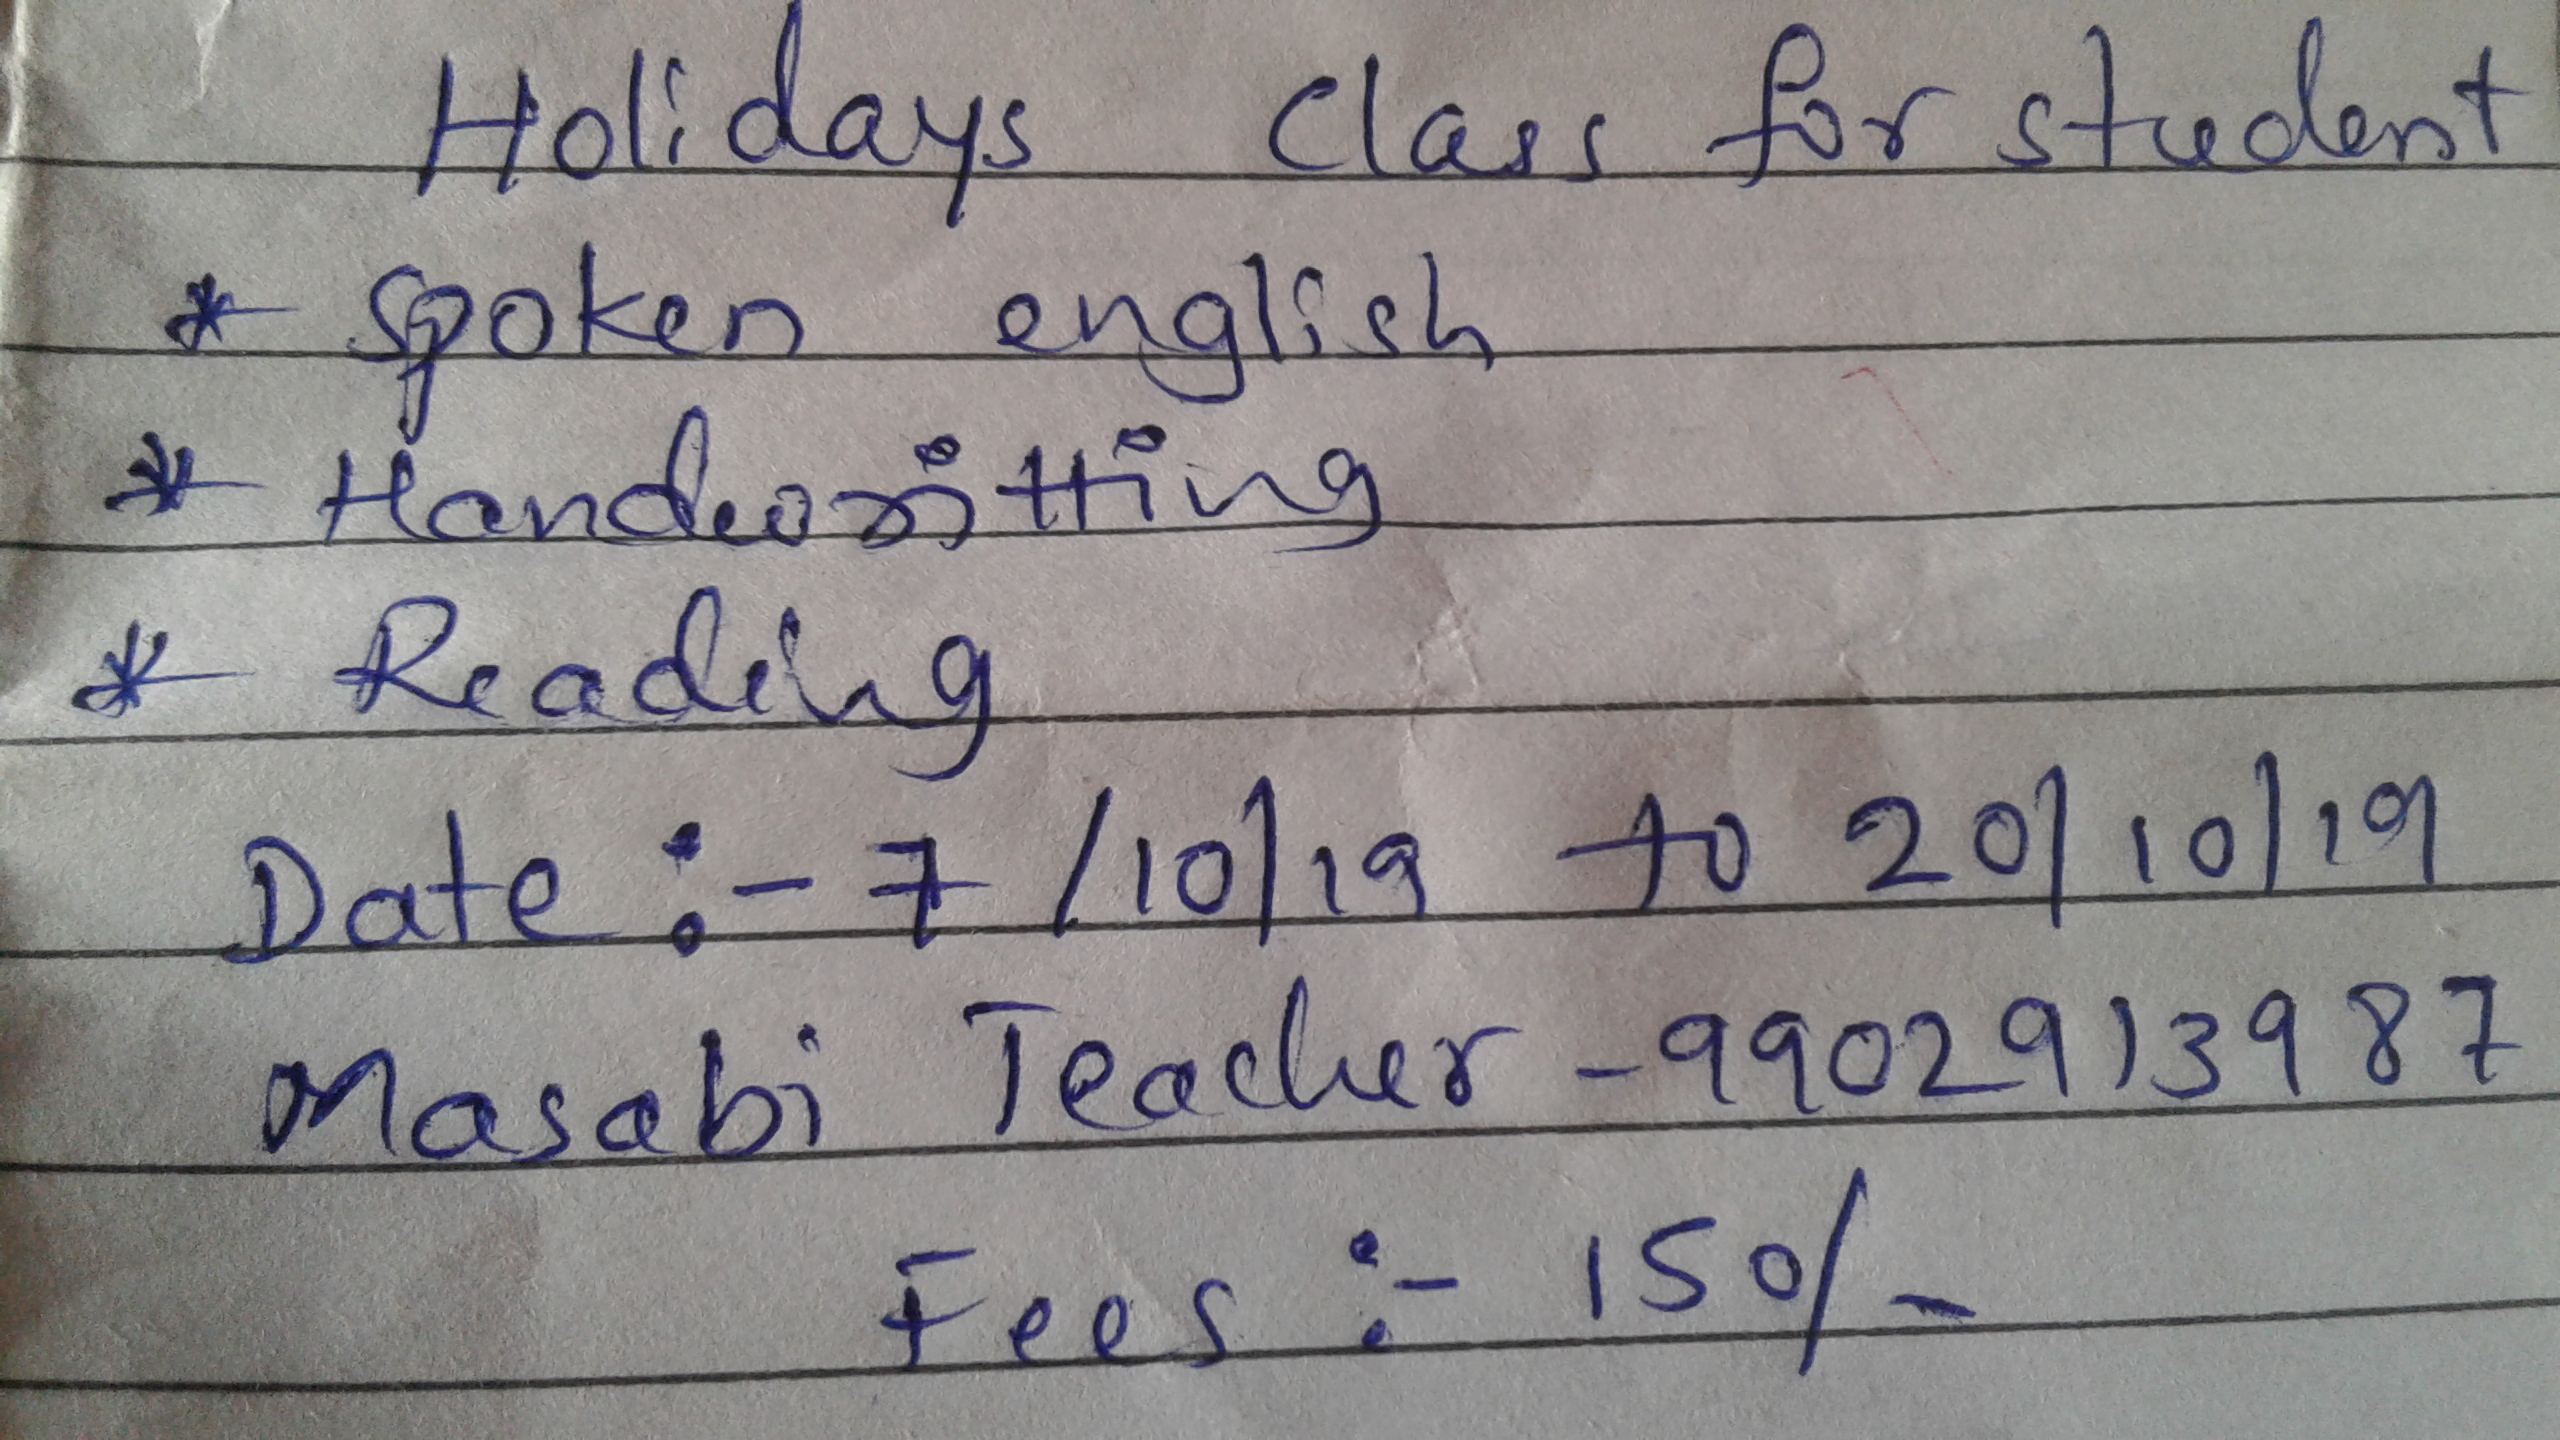 Holidays Class for student
* Spoken english
* Handwritting
* Reading
Date :- 7/10/19 to 20/10/19
Masabi Teacher - 9902913987
Fees :- 150/-